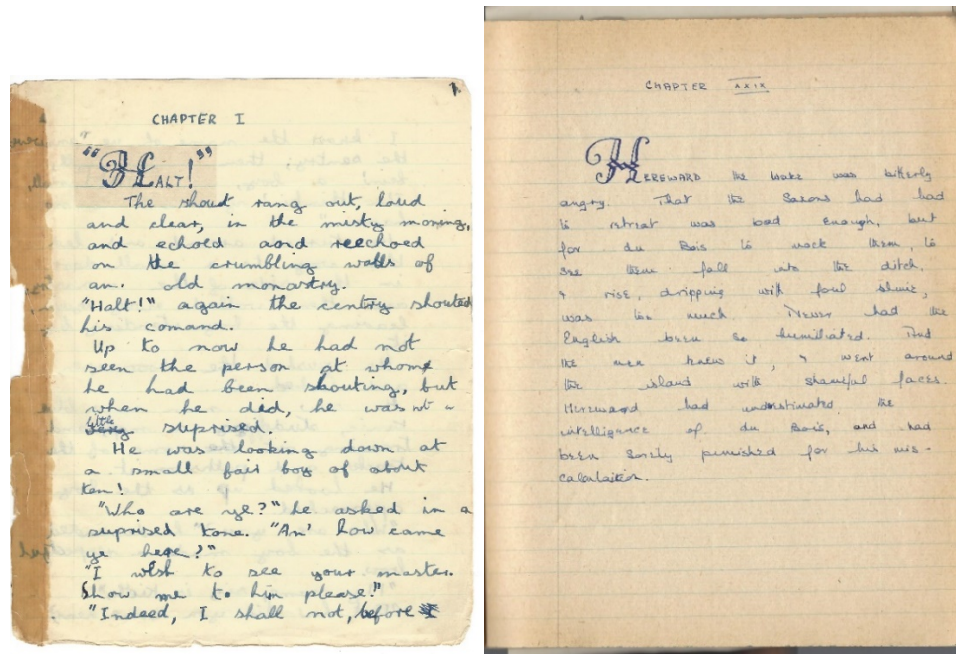 1
CHAPTER I
"HALT!"
The shout rang out, loud
and clear, in the misty moning,
and echoed aond reechoed
on the crumbling walls of
an. old monastry.
"Halt!" again the centry shouted
his comand.
Up to now he had not
seen the person at whom
he had been shouting, but
when he did, he was not a
little suprised.
He was looking down at
a small fair boy of about
ten!
"Who are ye?" he asked in a
suprised tone. "An' how came
ye here?"
"I wish to see your master.
Show me to him please!"
"Indeed, I shall not, before
CHAPTER XXIX
HEREWARD the Wake was bitterly
angry. That the Saxons had had
to retreat was bad enough, but
for du Bois to mock them, to
see them fall into the ditch.
& rise, dripping with foul slime,
was too much. Never had the
English been so humiliated. And
the men knew it, & went around
the island with shameful faces.
Hereward had undrestimated the
intelligence of du Bois, and had
been sorely punished for his mis-
calculation.